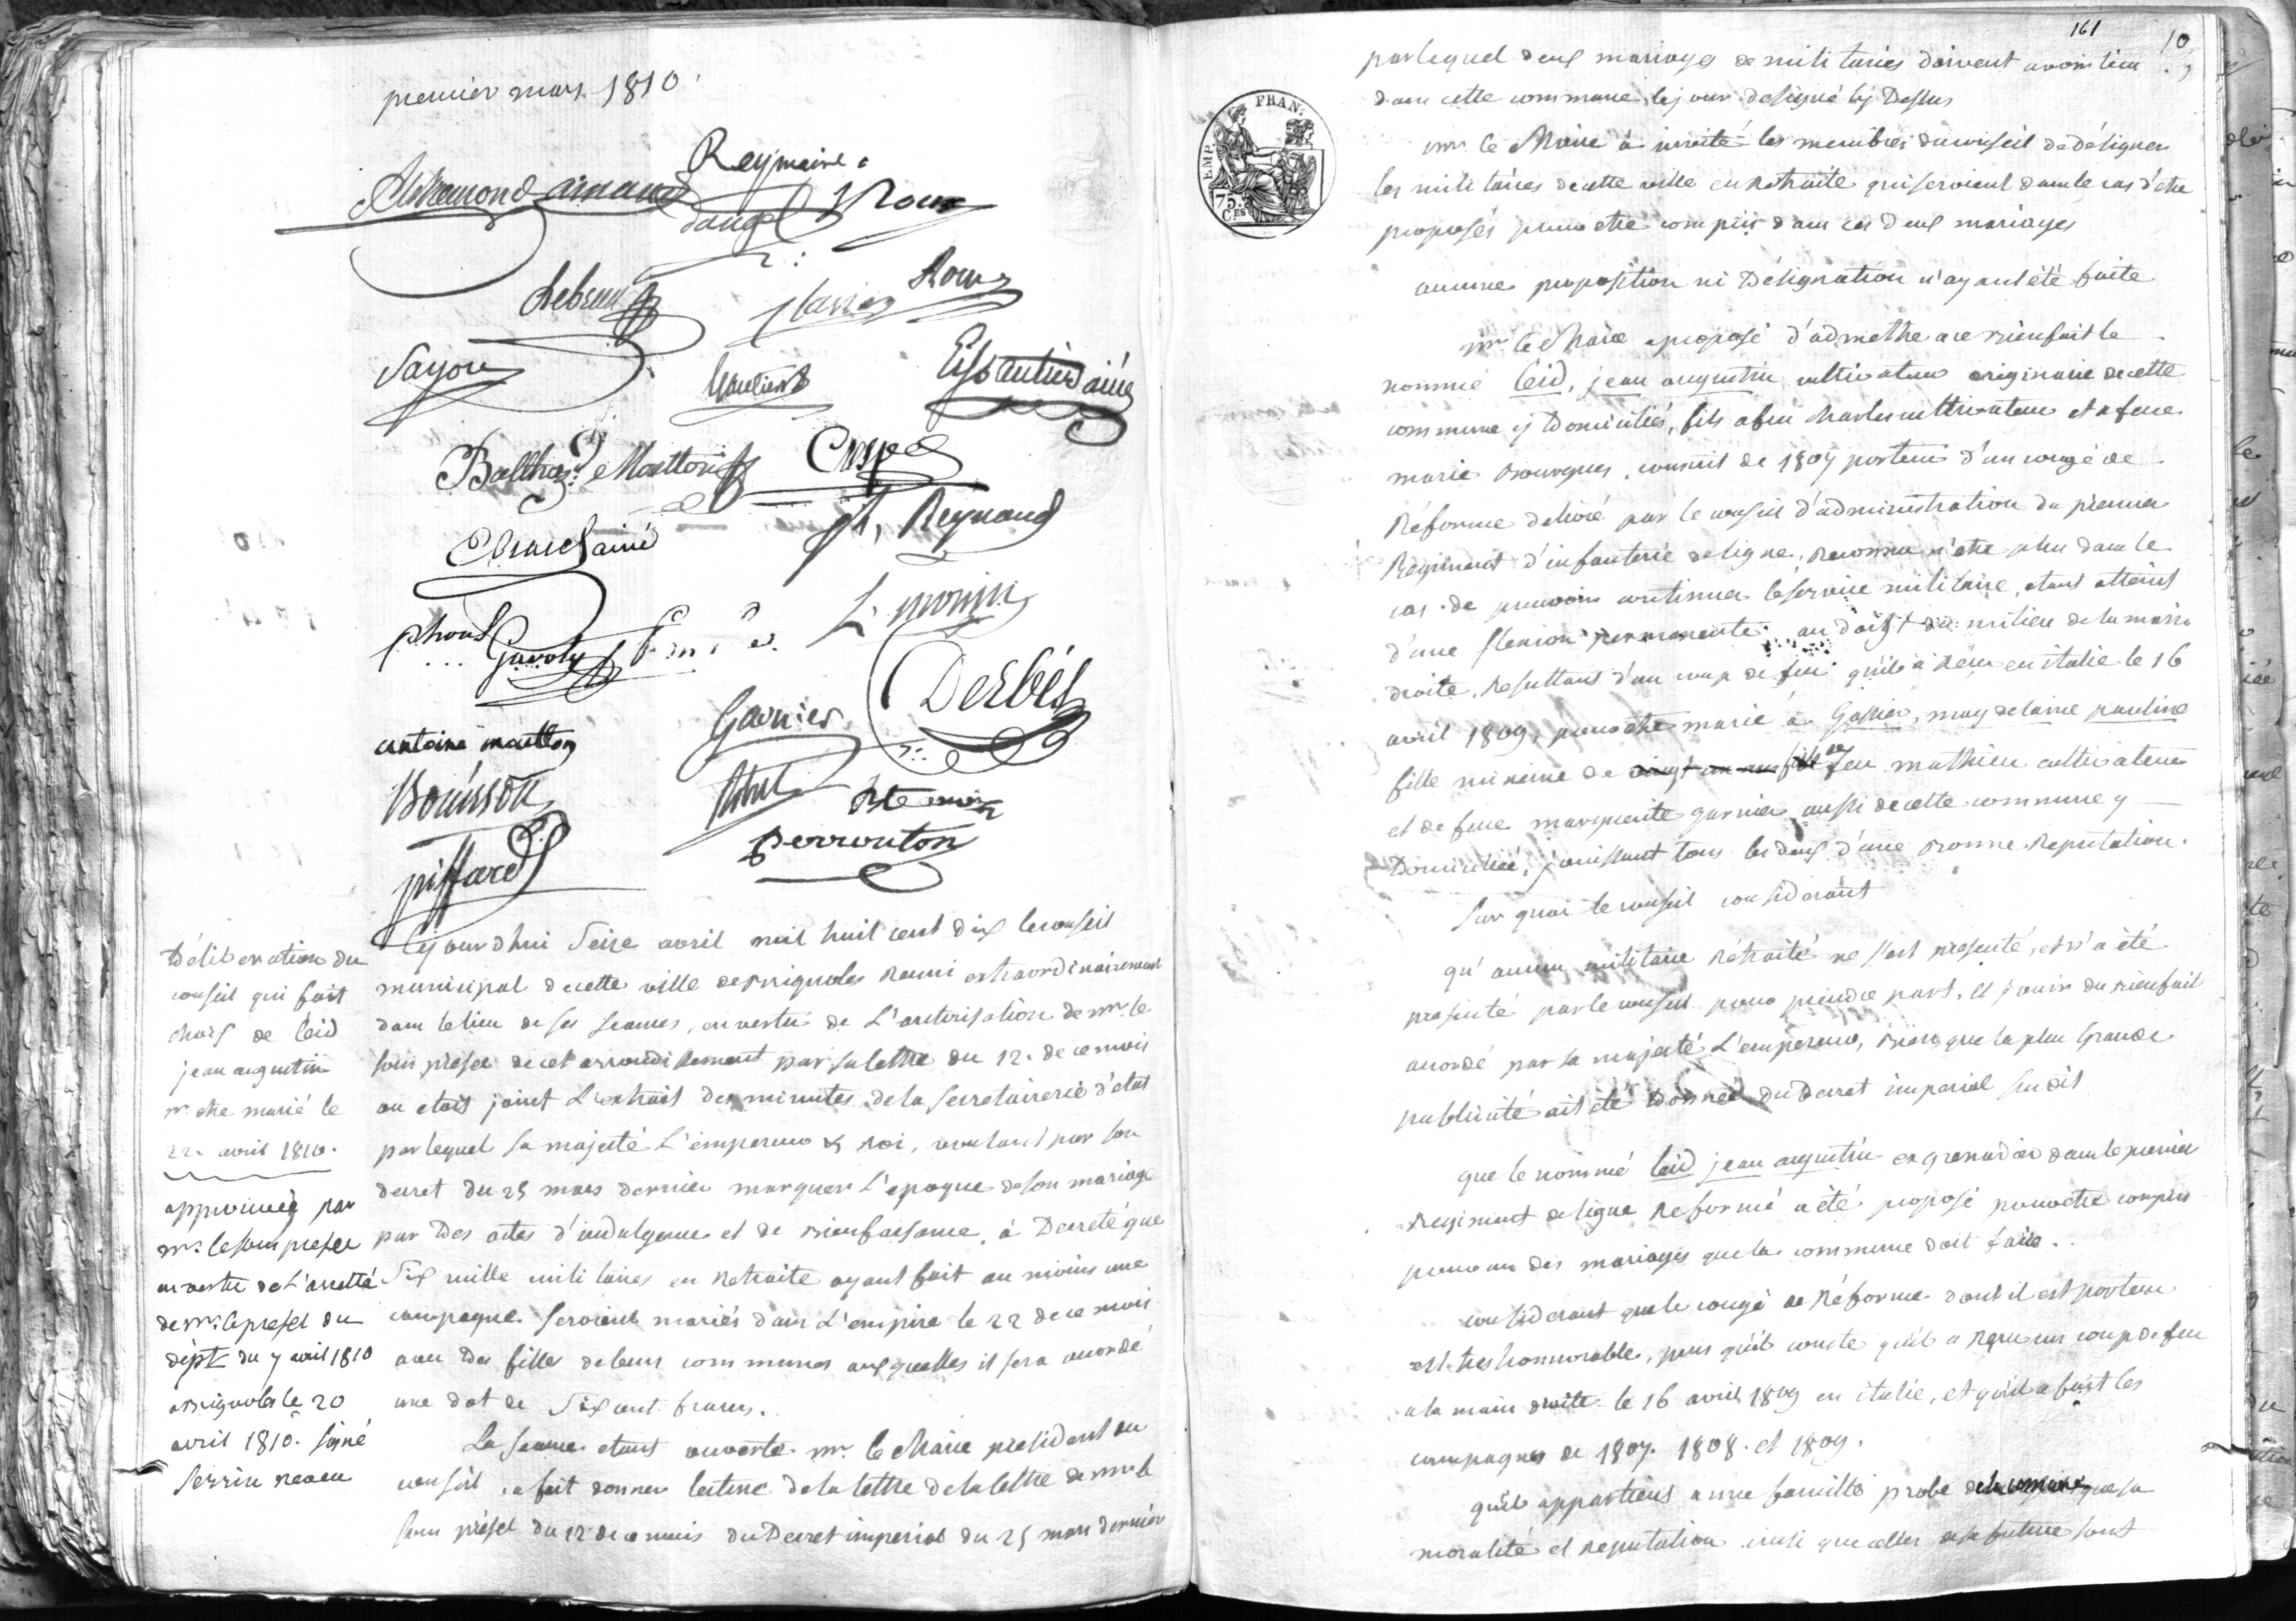 premier mars 1810
Reymaire
Arnaud
Dangel Roux
Lebrun Clavier Roux
Sayou Gautier Estautier ainé
Balthaz.d Maitton Crespe
ainé Reynaud
Gavoty L. monin
antoine maitton Garnier Derbès
Bouisson
perrouton
piffard
Déliberation du
conseil qui fait
choix de Ceid
jean augustin
pr etre marié le
22. avril 1810.
approuvée par
mr. le sous prefet
en vertu de l'arretté
de mr. le prefet du
dépt du 7 avril 1810
a Brignoles le 20
avril 1810. signé
Perrin neveu
Cejourdhui Seize avril mil huit cent dix le conseil
municipal de cette ville de Brignoles Reuni extraordinairement
dans le lieu de ses seances, en vertu de L'autorisation de mr. le
sous préfet de cet arrondissement par sa lettre du 12. de ce mois
ou etoit joint L'extrait des minutes de la secretairerie d'etat
par lequel sa majesté L'empereur & Roi, voulant par son
decret du 25 mars dernier marquer L'epoque de son mariage
par Des actes d'indulgence et de Bienfaisance, à Decreté que
Six mille militaires en Retraite ayant fait au moins une
campagne seroient mariés dans L'empire le 22 de ce mois
avec Des filles de leurs communes auxquelles il sera accordé
une dot de Six cent francs.
La seance etant ouverte mr. le Maire president du
conseil, a fait donner lecture de la lettre de la lettre de mr. le
sous préfet du 12 de ce mois du Decret imperial du 25 mars dernier
161 10
par lequel deux mariages de militaires doivent avoir lieu
dans cette commune le jour designé cy Dessus
EMP. FRAN.
75. CES
mr. le Maire à invité les membres du conseil de désigner
les militaires de cette ville en Retraite qui seroient dans le cas d'etre
proposés pour etre compris dans ces deux mariages
aucune proposition ni Désignation n'ayant été faite
mr. le Maire a proposé d'admettre a ce Bienfait le
nommé Ceid, jean augustin cultivateur originaire de cette
commune y Domicilié, fils a feu Charles cultivateur et a feue
marie Bourgues, conscrit de 1807 porteur d'un congé de
Réforme delivré par le conseil d'administration du premier
Regiment d'infanterie de ligne, Reconnu n'etre plus dans le
cas de pouvoir continuer le service militaire, etant atteint
d'une flexion permanente au doigt du milieu de la main
droite, Resultant d'un coup de feu qu'il a Reçu en italie le 16
avril 1809, pour etre marié à Gassier, magdelaine pauline
fille mineure de feu mathieu cultivateur
et de feue marguerite garnier aussi de cette commune y
Domiciliée, jouissant tous les deux d'une Bonne Reputation.
Sur quoi le conseil considerant
qu'aucun militaire Retraité ne s'est presenté, et n'a été
presenté par le conseil pour prendre part, et jouir du Bienfait
accordé par sa majesté L'empereur, Bien que la plus Grande
publicité ait eté Donnée du Decret imperial susdit
que le nommé Ceid jean augustin ex grenadier dans le premier
Regiment de ligne Reformé a été proposé pour etre compris
pour un des mariages que la commune doit faire.
considerant que le congé de Réforme dont il est porteur
est tres honnorable, puis qu'il conste qu'il a Reçu un coup de feu
a la main droite le 16 avril 1809 en italie, et qu'il a fait les
campagnes de 1807. 1808. et 1809.
qu'il appartient a une famille probe que sa
moralité et Reputation ainsi que celles de sa future sont